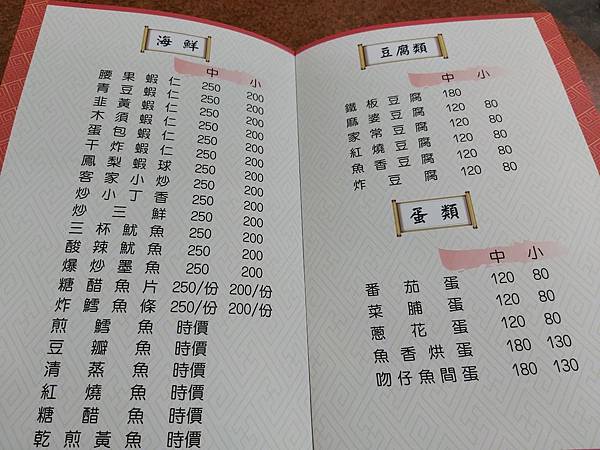 海鮮
中 小
腰果蝦仁 250 200
青豆蝦仁 250 200
韭黃蝦仁 250 200
木須蝦仁 250 200
蛋包蝦仁 250 200
干炸蝦仁 250 200
鳳梨蝦球 250 200
客家小炒 250 200
炒小丁香 250 200
炒三鮮 250 200
三杯魷魚 250 200
酸辣魷魚 250 200
爆炒墨魚 250 200
糖醋魚片 250/份 200/份
炸鱈魚條 250/份 200/份
煎鱈魚 時價
豆瓣魚 時價
清蒸魚 時價
紅燒魚 時價
糖醋魚 時價
乾煎黃魚 時價
豆腐類
中 小
鐵板豆腐 180
麻婆豆腐 120 80
家常豆腐 120 80
紅燒豆腐 120 80
魚香豆腐 120 80
炸豆腐 120 80
蛋類
中 小
番茄蛋 120 80
菜脯蛋 120 80
蔥花蛋 120 80
魚香烘蛋 180 130
吻仔魚間蛋 180 130